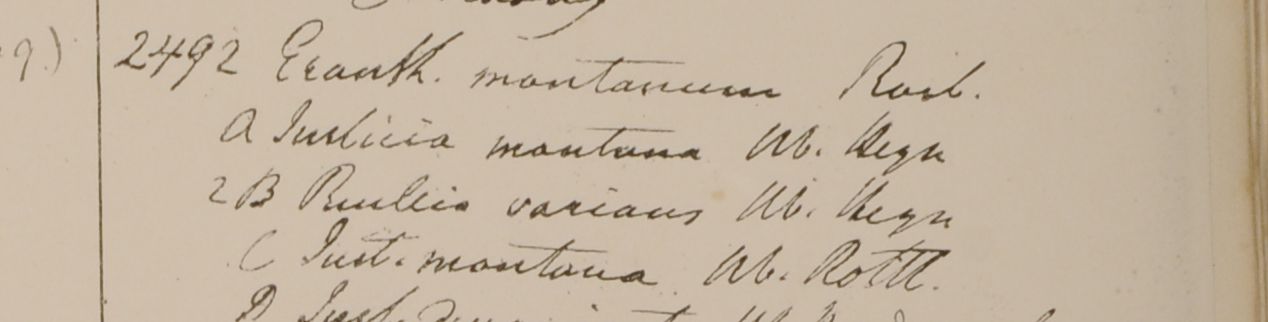 9.)
2492 Eranth. montanum Roxb.
A Justicia montana Hb. Heyn
2 B Ruellia varians Hb. Heyn
C Just. montana Hb. Rottl.
D Just.